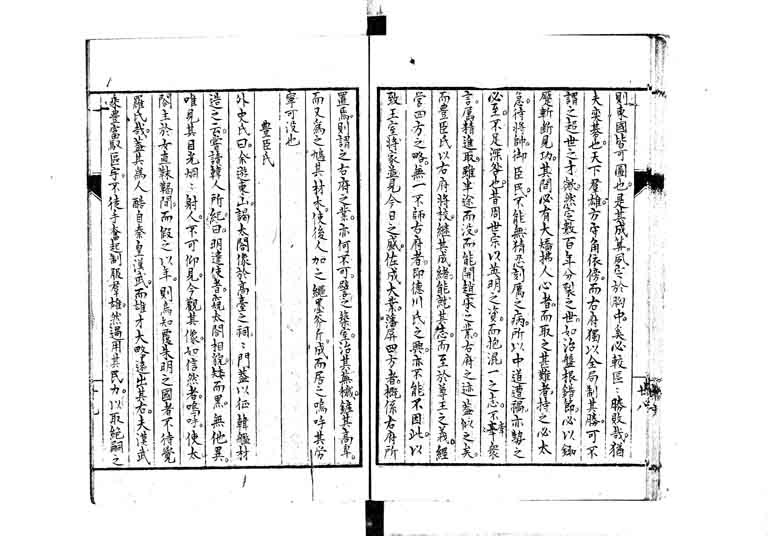 則東國皆可圖也是其成算夙忍於胸中奚必較區〻勝敗哉猶
夫奕棊也天下群雄方守角依傍而右府獨以全局制其勝可不
謂之超世之才歟然室數百年分裂之世如治盤根錯節必以銛
斷斷見功其間必有大矯拂人心者而取之甚難者持之必太
急待將帥御臣民不能無猜忍刻厲之病所以中道遭禍亦勢之
必至不足深咎也昔周世宗以英明之資而抱混一之志不幸
言厲精進取雖半途而沒而能開趙宋之業右府之迹蓋似之矣
而豐臣氏以右府將校繼其成緒能就其志而至於尊王之義經
營四方之略無一不師右府者即德川氏之興亦不能不因此以
致王室將家遠見今日之盛佐成大業藩屏四方者概係右府所
置焉則謂之右府之業亦何不可譬之築室治其蕪穢鏟其高阜
而又為之儲其材木使後人加之繩墨斧斤成而居之嗚呼其勞
寧可沒也
豐臣氏
外史氏曰余遊東山謁太閤像於高臺之祠〻門蓋以征韓艦材
造之云嘗讀韓人所紀曰明遣使者窺太閤相貌矮而黑無他異
唯見其目光烱〻射人不可仰見今觀其像如信然者嗚呼使太
閤主於女直靺鞨間而假之以年則烏知覆朱明之國者不待覺
羅氏哉蓋其為人酷自秦皇漢武而雄才大略遠出其右夫漢武
乘豐富馭區宇不徒手奮起制服群雄然過用其民力以取絕嗣之